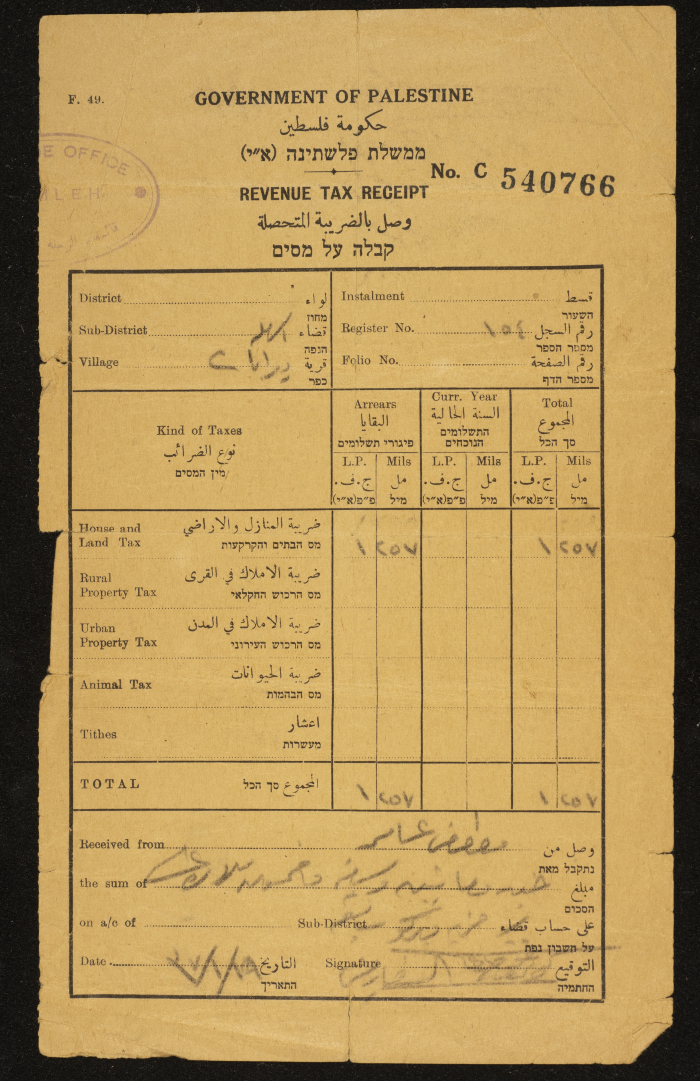 F. 49.
GOVERNMENT OF PALESTINE
حكومة فلسطين
ממשלת פלשתינה (א״י)
No. C 540766
REVENUE TAX RECEIPT
وصل بالضريبة المتحصلة
קבלה על מסים
OFFICE
District لواء
מחוז
Sub-District قضاء
הנפה
Village قرية
כפר
Instalment قسط
השעור
Register No. ١٥٤ رقم السجل
מספר הספר
Folio No. رقم الصفحة
מספר הדף
Kind of Taxes
نوع الضرائب
מין המסים
Arrears
البقايا
פיגורי תשלומים
Curr. Year
السنة الحالية
התשלומים
הנוכחים
Total
المجموع
סך הכל
L.P. Mils L.P. Mils L.P. Mils
ج.ف. مل ج.ف. مل ج.ف. مل
פ״פ(א״י) מיל פ״פ(א״י) מיל פ״פ(א״י) מיל
House and ضريبة المنازل والاراضي
Land Tax מס הבתים והקרקעות
١ ٢٥٧ ١ ٢٥٧
Rural ضريبة الاملاك في القرى
Property Tax מס הרכוש החקלאי
Urban ضريبة الاملاك في المدن
Property Tax מס הרכוש העירוני
Animal Tax ضريبة الحيوانات
מס הבהמות
Tithes اعشار
מעשרות
TOTAL المجموع סך הכל ١ ٢٥٧ ١ ٢٥٧
Received from وصل من
נתקבל מאת
the sum of مبلغ
הסכום
on a/c of Sub-District على حساب قضاء
על חשבון נפת
Date التاريخ Signature التوقيع
התאריך החתימה